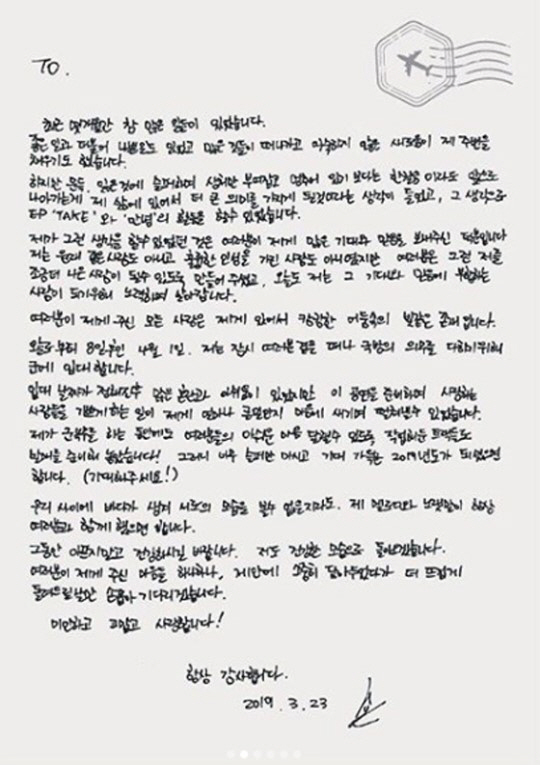 TO.
최근 몇개월간 참 많은 일들이 있었습니다.
좋은 일과 더불어 나쁜일도 있었고 많은 것들이 떠나가고 익숙하지 않은 새로움이 제 주변을
채우기도 했습니다.
하지만 문득, 잃은것에 슬퍼하며 상처만 부여잡고 멈추어 있기 보다는 한걸음 이라도 앞으로
나아가는게 제 삶에 있어서 더 큰 의미를 가지게 될것이라는 생각이 들었고, 그 생각으로
EP 'TAKE' 와 '만남'의 활동을 할수 있었습니다.
제가 그런 생각을 할수 있었던 것은 여러분이 제게 많은 기대와 믿음을 보내주신 덕분입니다
저는 원래 좋은 사람도 아니고 훌륭한 인성을 가진 사람도 아니었지만 여러분은 그런 저를
조금더 나은 사람이 될수 있도록 만들어 주셨고, 오늘도 저는 그 기대와 믿음에 부합하는
사람이 되기위해 노력하며 살아갑니다.
여러분이 제게 주신 모든 사랑은 제게 있어서 캄캄한 어둠속의 빛같은 존재 입니다.
오늘로부터 8일후인 4월 1일. 저는 잠시 여러분 곁을 떠나 국방의 의무를 다하기위해
군에 입대 합니다.
입대 날짜가 정해진후 많은 혼란과 아쉬움이 있었지만 이 공연을 준비하며 사랑하는
사람들을 기쁘게 하는 일이 제게 얼마나 큰 일인지 마음에 새기며 떨쳐낼수 있었습니다.
제가 군복무를 하는 동안에도 여러분들의 아쉬운 마음 달랠수 있도록 작업해둔 트랙들도
발매를 준비해 놓았습니다! 그러니 너무 슬퍼만 마시고 기대 가득한 2019년도가 되었으면
합니다. (기대해주세요!)
우리 사이에 바다가 생겨 서로의 모습을 볼수 없을지라도. 제 멜로디와 노랫말이 항상
여러분과 함께 했으면 합니다.
그동안 아프지말고 건강하시길 바랍니다. 저도 건강한 모습으로 돌아오겠습니다.
여러분이 제게 주신 마음을 하나하나, 제안에 소중히 담아두었다가 더 뜨겁게
돌려드릴날만 손꼽아 기다리겠습니다.
미안하고 고맙고 사랑합니다!
항상 감사합니다.
2019. 3. 23